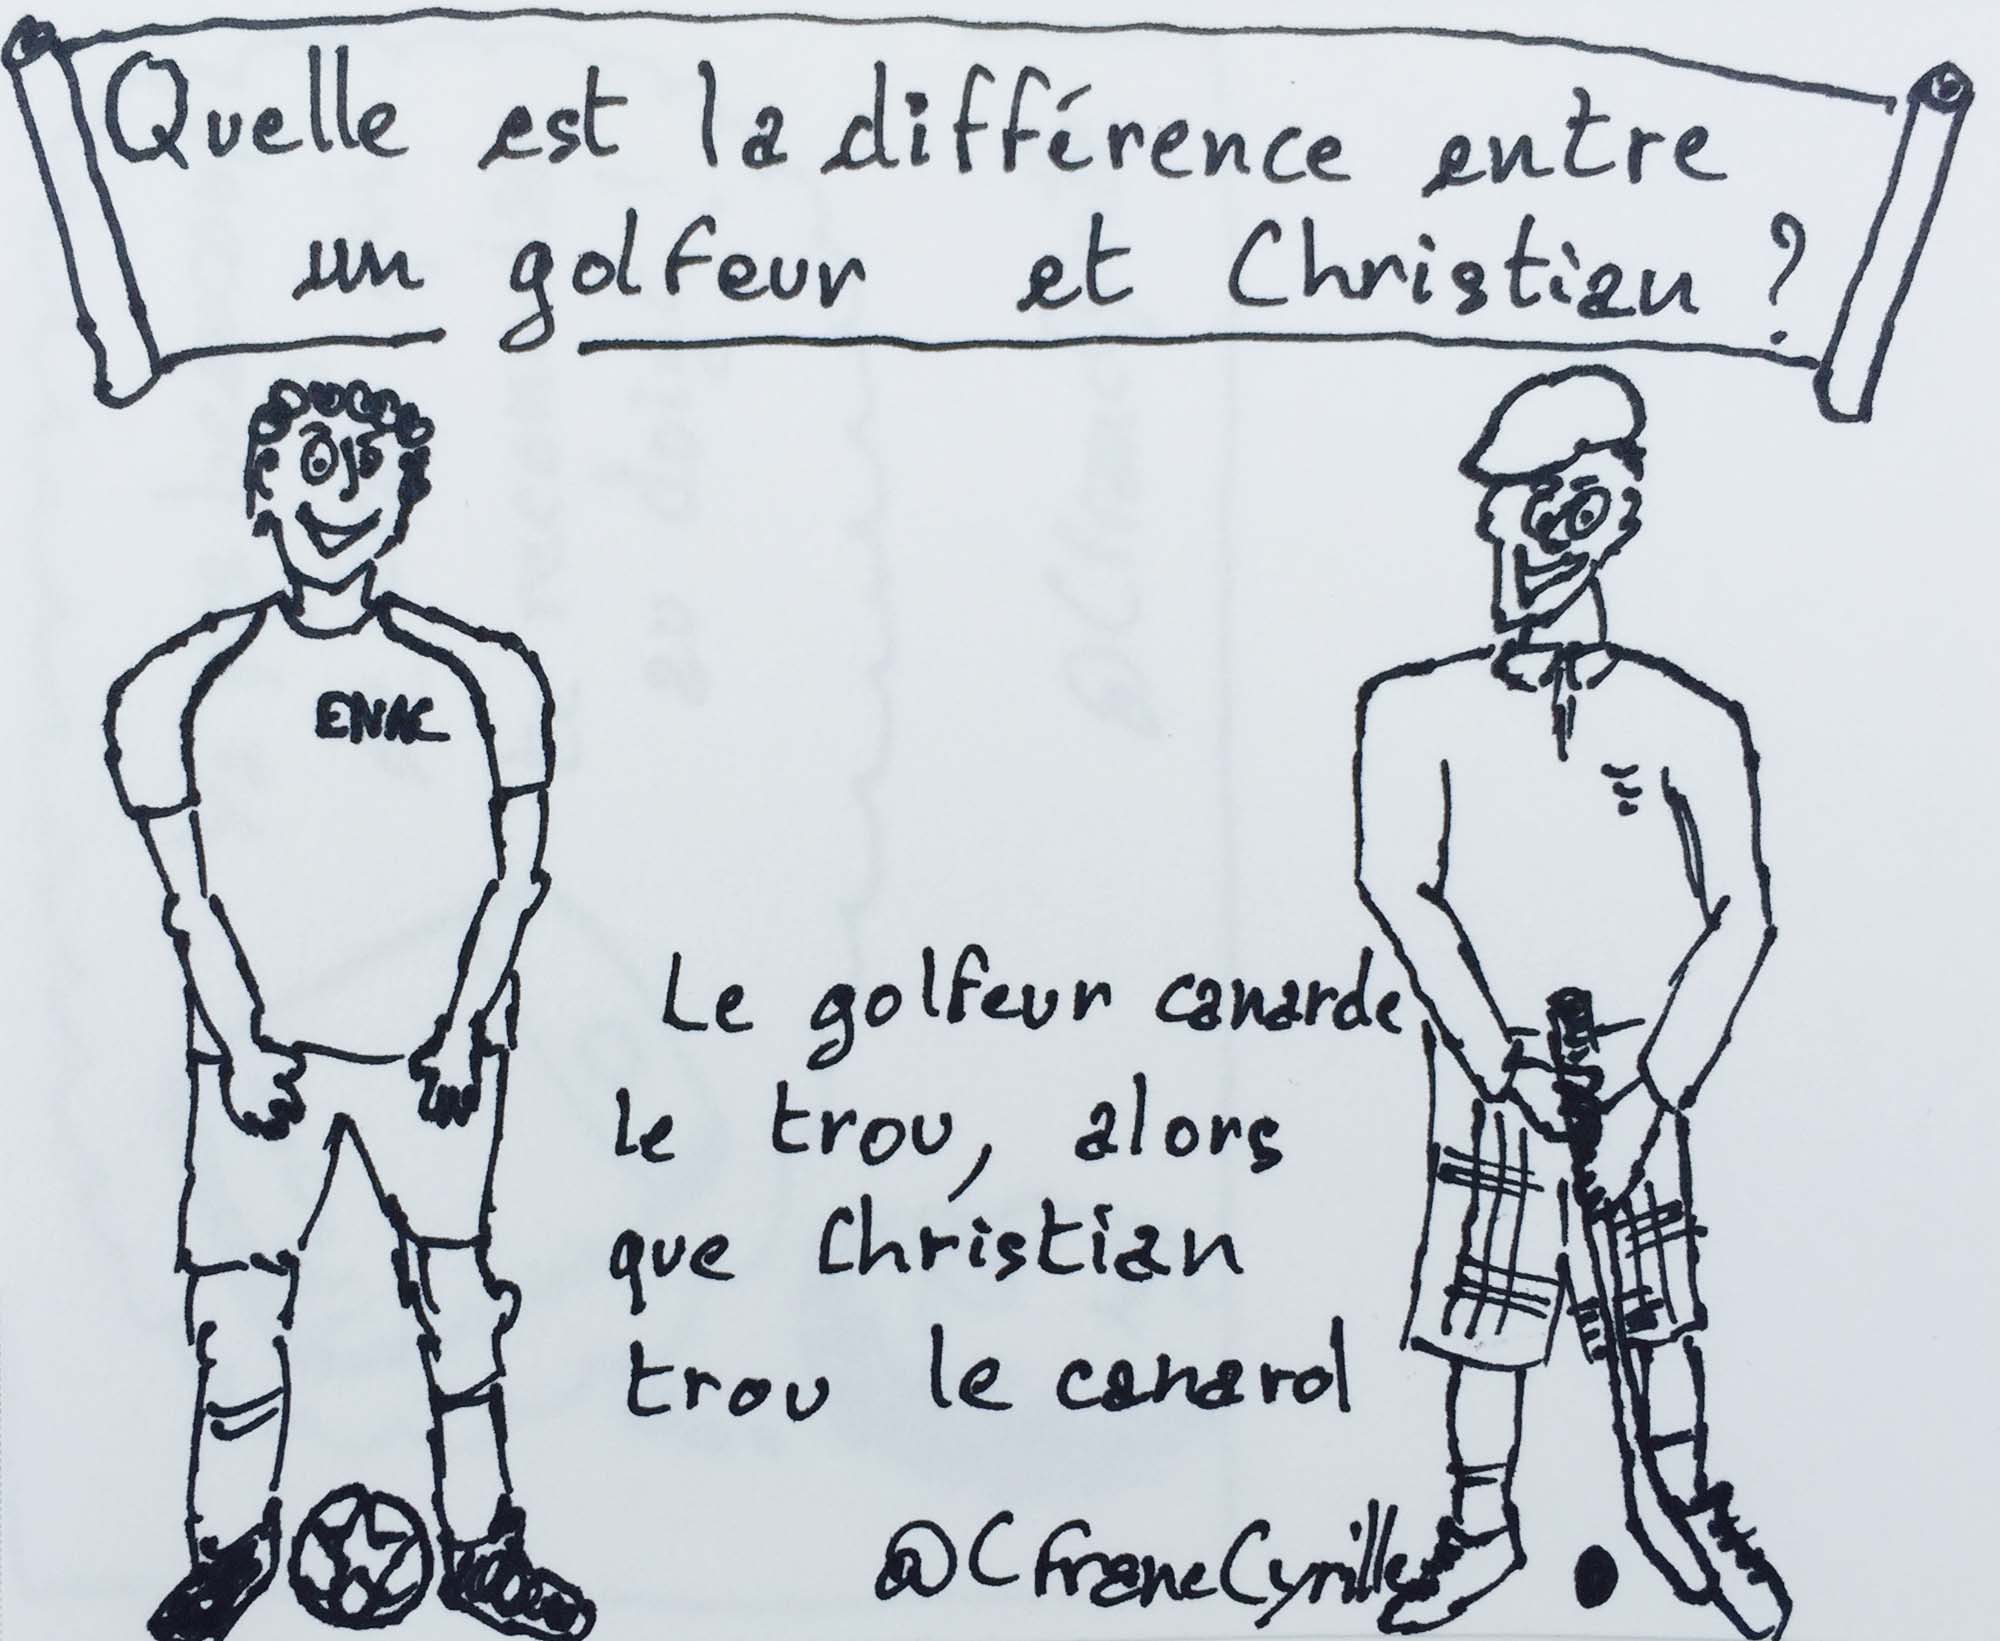 Quelle est la différence entre
un golfeur et Christian ?
ENAC
Le golfeur canarde
le trou, alors
que Christian
trou le canard
@CfrancCyrille